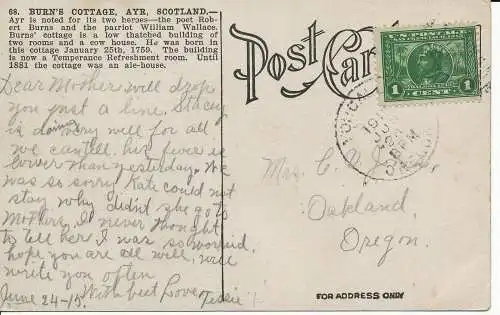 68. BURN'S COTTAGE, AYR, SCOTLAND.—
Ayr is noted for its two heroes—the poet Rob-
ert Burns and the patriot William Wallace.
Burns' cottage is a low thatched building of
two rooms and a cow house. He was born in
this cottage January 25th, 1759. The building
is now a Temperance Refreshment room. Until
1881 the cottage was an ale-house.
Post Card
U.S. POSTAGE
1 CENT 1
Dear Mother will drop
you just a line. Stacey
is doing very well for all
we can tell. his fever is
lower than yesterday. We
was so sorry Kate could not
stay why didn't she go to
Mothers, I never thought
to tell her I was so worried
hope you are all well, will
write you often
With best Love
June 24-15.
Mrs. C.
Oakland,
Oregon.
FOR ADDRESS ONLY